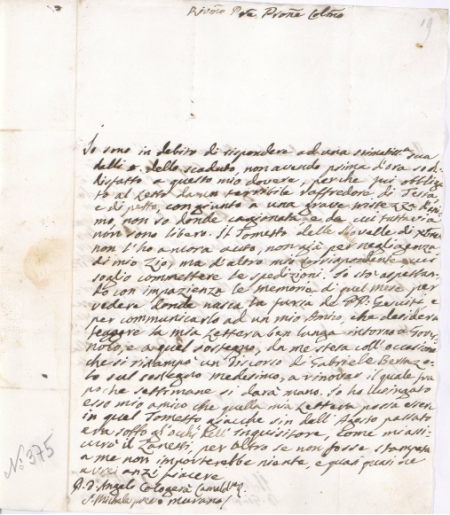 19
Io sono in debito di rispondere ad una stimatiss. sua
delli 2. dello scaduto, non avendo prima d'ora sod-
disfatto a questo mio dovere, perchè fui obbliga
to al Letto da un terribile raffredore di Testa
e di petto, congiunto a una grave
mo, non so donde cagionata, e da cui tuttavia
non sono libero. Il Tometto delle Novelle di
non l'ho ancora avuto, non già per negligenza
di mio Zio, ma d'altro mio corrispondente a cui
soglio commettere le spedizioni. Io stò aspettan-
do con impazienza le memorie di quel mese per
vedere donde nasca la furia de' PP. Gesuiti e
per communicarlo ad un mio Amico, che desidera
leggere la mia Lettera ben lunga intorno a Gover-
nolo, e a quel sostegno, da me stesa coll'occasione
che si ristampò un Discorso di Gabriele Bertazzo-
lo sul sostegno medesimo, a rinovar il quale fra
poche settimane si darà mano. Io ho lusingato
esso mio amico che quella mia Lettera possa essere
in quel Tometto, giacchè sin dell'Agosto passato
era sotto gl'occhi dell'Inquisitore, come mi assi-
curò il Zanetti, per altro se non fosse stampata
a me non importerebbe niente, e quasi quasi ne
avrei anzi piacere
P. D. Angelo Calogerà Camald.
S. Michele presso Murano /
N.° 375